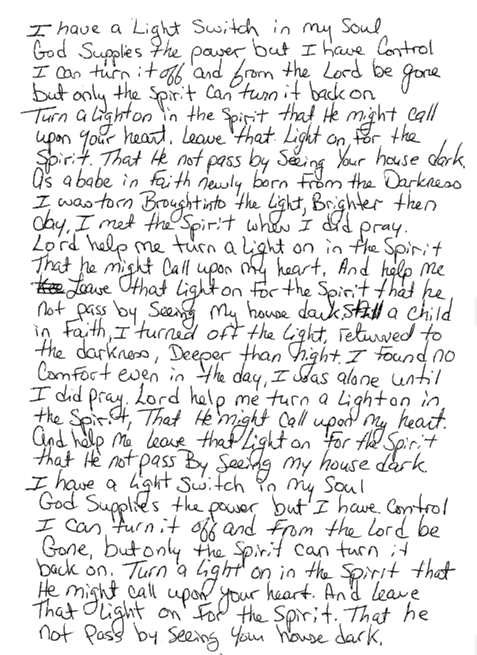 I have a Light Switch in my Soul
God Supplies the power but I have Control
I can turn it off and from the Lord be gone
but only the Spirit Can turn it back on
Turn a light on in the Spirit that He might call
upon your heart. Leave that Light on, for the
Spirit. That He not pass by Seeing Your house dark.
As a babe in Faith newly born from the Darkness
I was torn Brought into the Light, Brighter then
day, I met the Spirit when I did pray.
Lord help me turn a light on in the Spirit
That he might Call upon my heart. And help me
Leave that Light on for the Spirit that he
not pass by Seeing My house dark. Still a child
in Faith, I turned off the Light, returned to
the darkness, Deeper than night I found no
Comfort even in the day, I was alone until
I did pray. Lord help me turn a Light on in
the Spirit, That He might Call upon my heart.
And help me leave that Light on for the Spirit
that He not pass By Seeing my house dark.
I have a light Switch in my Soul
God Supplies the power but I have Control
I can turn it off and from the Lord be
Gone, but only the Spirit can turn it
back on. Turn a light on in the Spirit that
He might call upon your heart. And leave
That light on for the Spirit. That he
not pass by Seeing Your house dark.